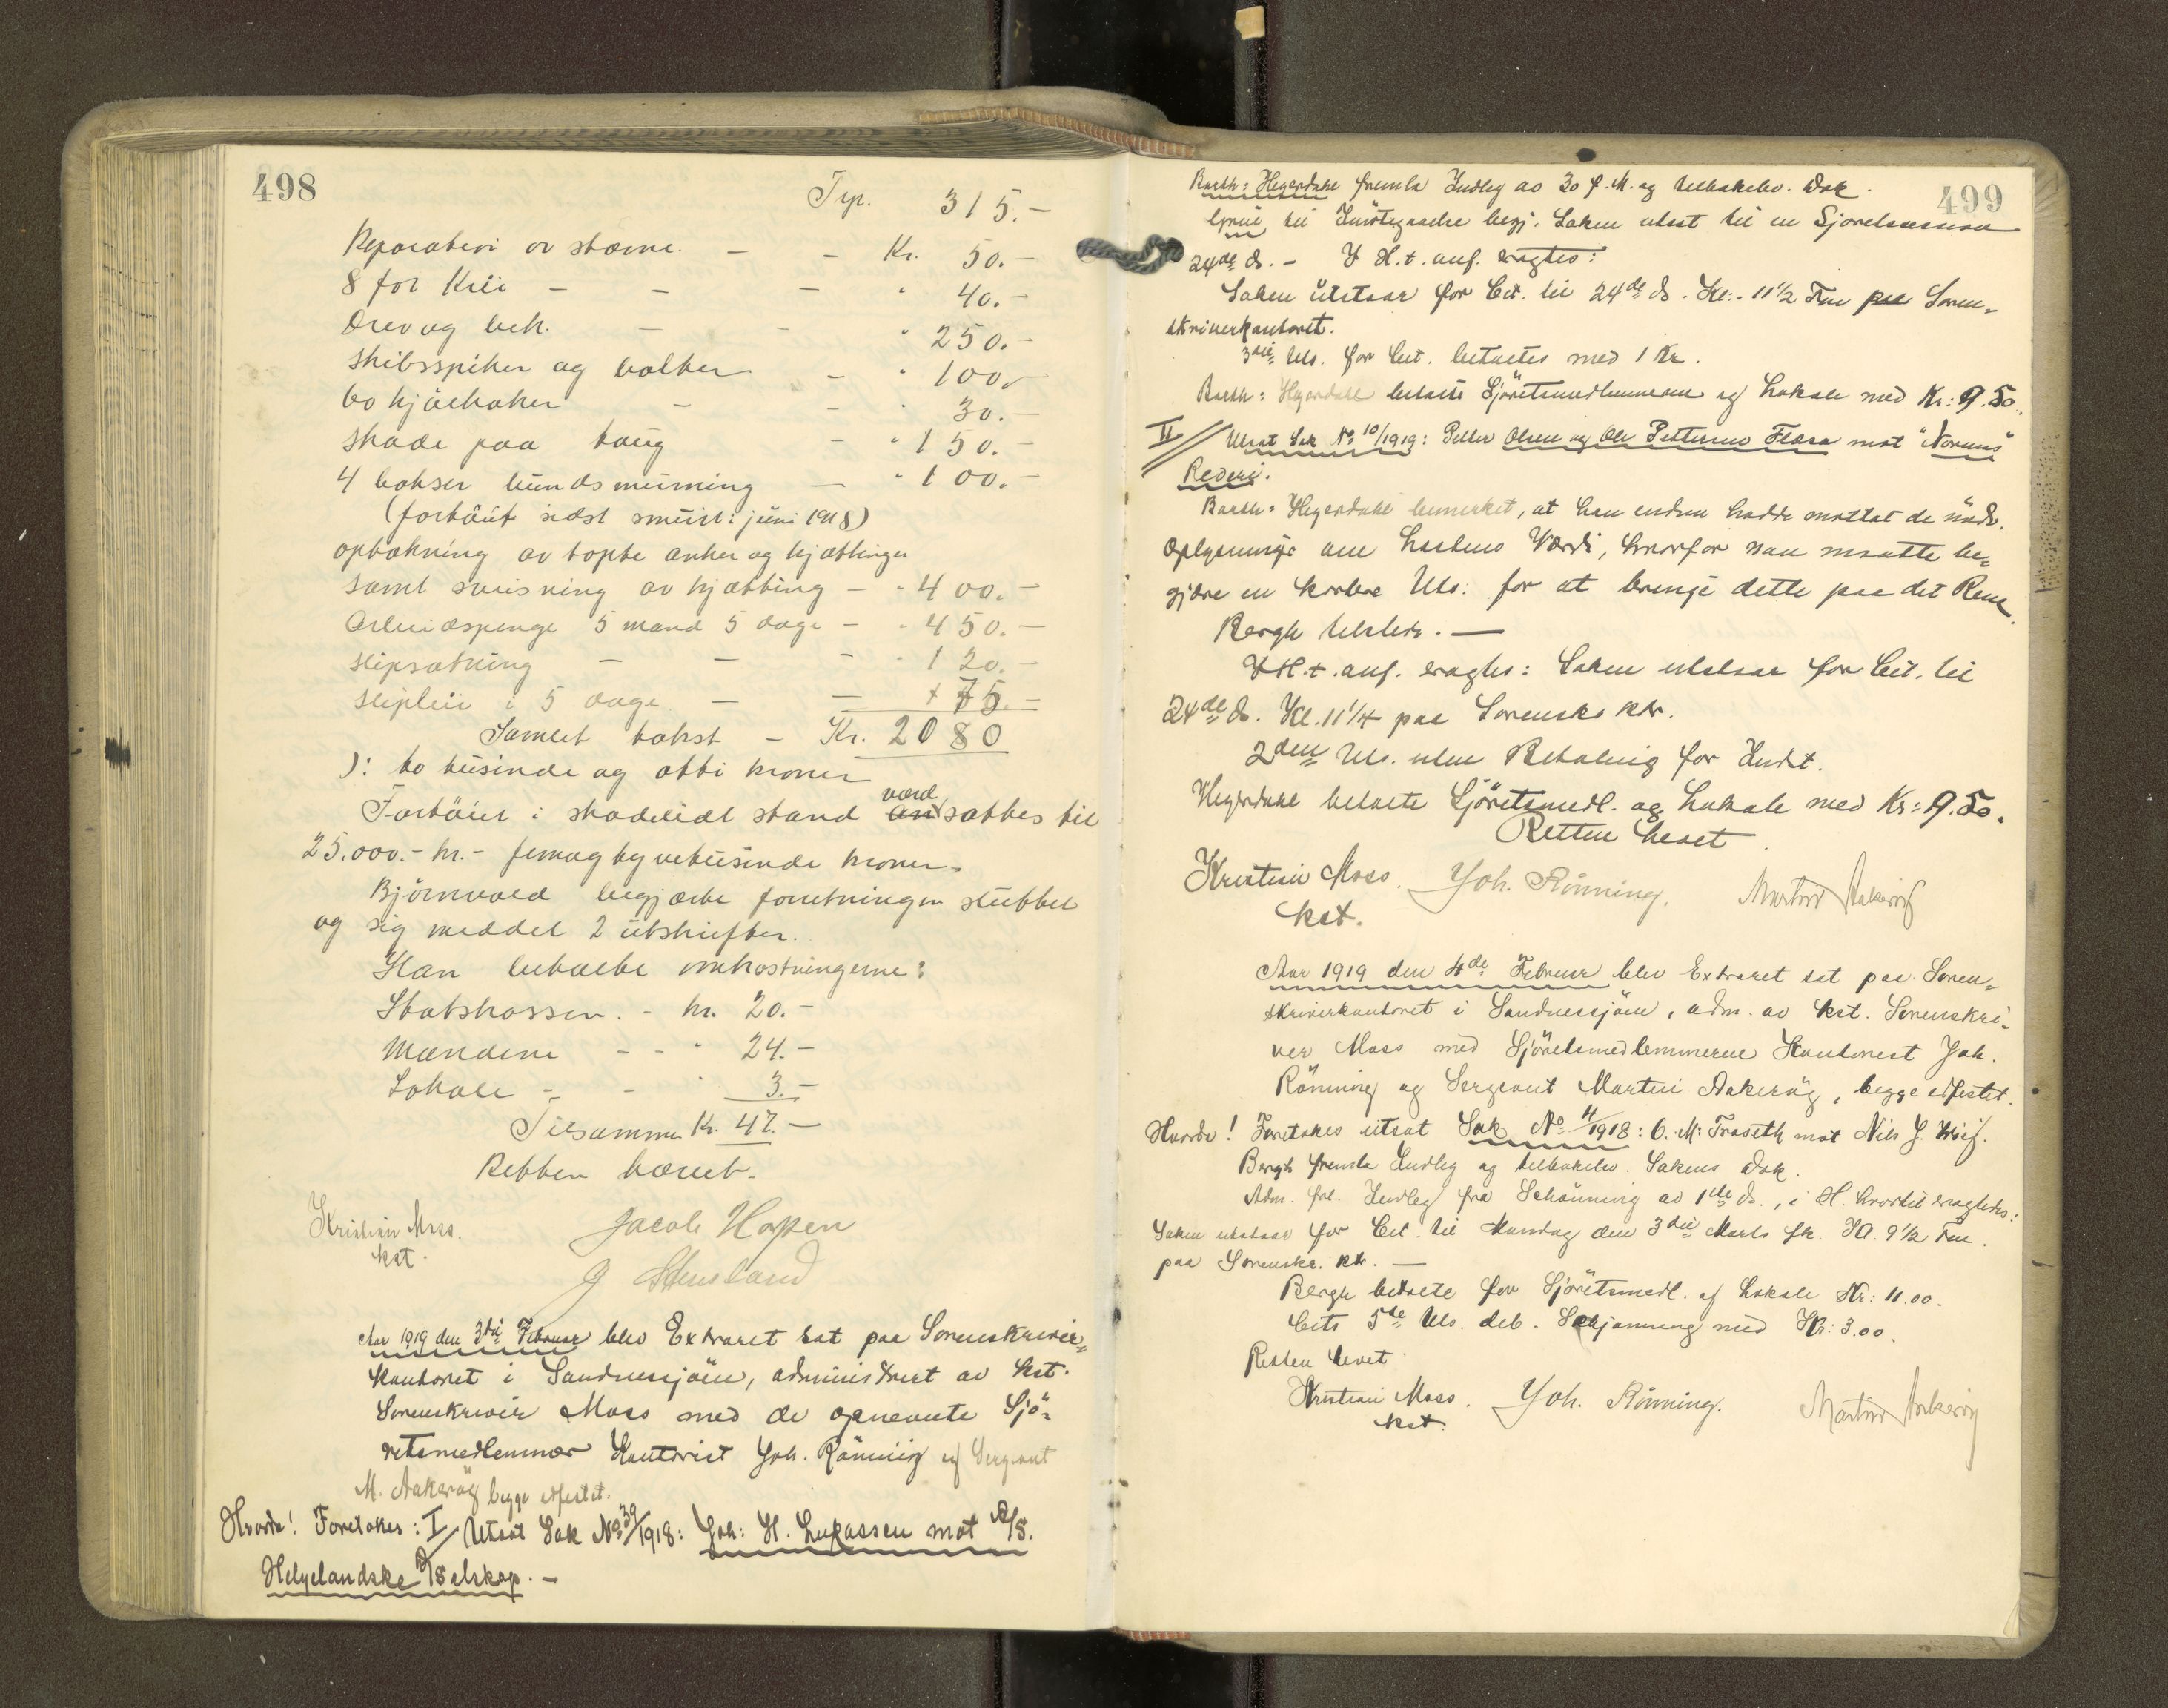 498
Trp. 315.-
Reparation av stævne. - - Kr. 50.-
8 for Kiil - - - " 40.-
Drev og bek. - - " 250.-
skibsspiker og bolter - " 100.-
to kjølhaker - - " 30.-
skade paa taug - " 150.-
4 bokser bundsmurning - " 100.-
(fartöiet sidst smurt i juni 1918)
optakning av tapte anker og kjættinger
samt sveisning av kjætting - " 400.-
Arbeidspenge 5 mand 5 dage - " 450.-
slipsætning - - - " 120.-
slipleie i 5 dage - - + 75.-
Samlet takst - Kr. 2080
): to tusinde og otti kroner
værd
Fartöiet i skadelidt stand an sattes til
25.000.- kr. - femogtyvetusinde kroner.
Björnvold begjærte forretningen sluttet
og sig meddelt 2 utskrifter.
Han betalte omkostningerne:
Statskassen. - kr. 20.-
Mændene - - " 24.-
Lokale - - " 3.-
Tilsammen Kr. 47.-
Retten hævet.
Kristian Moss. Jacob Hopen
kst.
J Stensland
Aar 1919 den 3die Februar blev Extraret sat paa Sorenskriver-
kontoret i Sandnessjöen, administrert av kst.
Sorenskriver Moss med de opnevnte Sjö-
retsmedlemmer Kontorist Joh. Rönning og Sergeant
M. Aakeröy begge edfestet.
Hvorda! Foretokes: I/ Utsat Sak No 39/1918: Joh: H. Lukassen mot A/S.
Helgelandske D/Selskap. -
499
Barth: Hegerdahl fremla Indleg av 30 f. M. og tilbakelev. Dok.
til Imötegaaelse begj. Saken utsat til en Sjoretssession
24de ds. - I H.t. anf. eragtes:
Saken utstaar for Cit. til 24de ds. Kl: 11½ Fm paa Soren-
skriverkontoret.
3die Uts. for Cit. betaltes med 1 Kr.
Barth: Hegerdahl betalte Sjöretsmedlemmerne og Lokale med Kr: 9.50.
II// Utsat Sak No 10/1919: Petter Olsen og Ole Pettersens Flæsa mot "Noruns"
Rederi.
Barth: Hegerdahl bemerket, at han endnu hadde mottat de nödv.
Oplysninger om Lastens Værdi, hvorfor han maatte be-
gjære en kortere Uts. for at bringe dette paa det Rene.
Bergh tilsteds. -
I H.t. anf. eragtes: Saken utstaar for Cit. til
24de ds. Kl. 11¼ paa Sorenskr ktr.
2den Uts. uten Betaling for Indst.
Hegerdahl betalte Sjöretsmedl. og Lokale med Kr: 9.50.
Retten hevet.
Kristian Moss. Joh. Rönning. Martin Aakeröy
kst.
Aar 1919 den 4de Februar blev Extraret sat paa Soren-
skriverkontoret i Sandnessjöen, adm. av kst. Sorenskri-
ver Moss med Sjöretsmedlemmerne Kontorist Joh.
Rönning og Sergeant Martin Aakeröy, begge edfestet.
Hvorda! Foretokes utsat Sak No 4/1918: O. M: Traseth mot Nils J.
Bergh fremla Indleg og tilbakelev. Sakens Dok.
Adm. frl. Indleg fra Schönning av 1ste ds., i H. hvortil eragtedes:
Saken utstaar for Cit. til Mandag den 3die Marts fk. Kl. 9½ Fm.
paa Sorenskr. ktr. -
Bergh betalte for Sjöretsmedl. og Lokale Kr: 11.00.
Cits 5te Uts. deb. Schjönning med Kr: 3.00.
Retten hevet.
Kristian Moss. Joh. Rönning. Martin Aakeröy
kst.